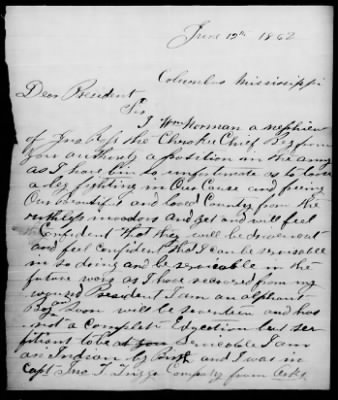 June 12th 1862
Columbus Mississippi
Dear President
Sir
I Wm Norman a nephiew
of Jno Ross the Cherokee Chief Beg from
your authority a position in the army
as I have been so unfortunate as to loose
a leg fighting in Our Cause and freeing
Our beautiful and loved Country from the
ruthless invadors and yet and will feel
Confident that they will be drivenout
and feel confident that I can be servisable
in so doing and be servicable in the
future wars as I have recovered from my
wound President I am an olphant
Boy an Soon will be seventeen and has
not a Complete Edgection but suf
fitiant to be at you Serviceable I am
an Indian by Birth and I was in
Capt Jno T Trigg Company from Arks